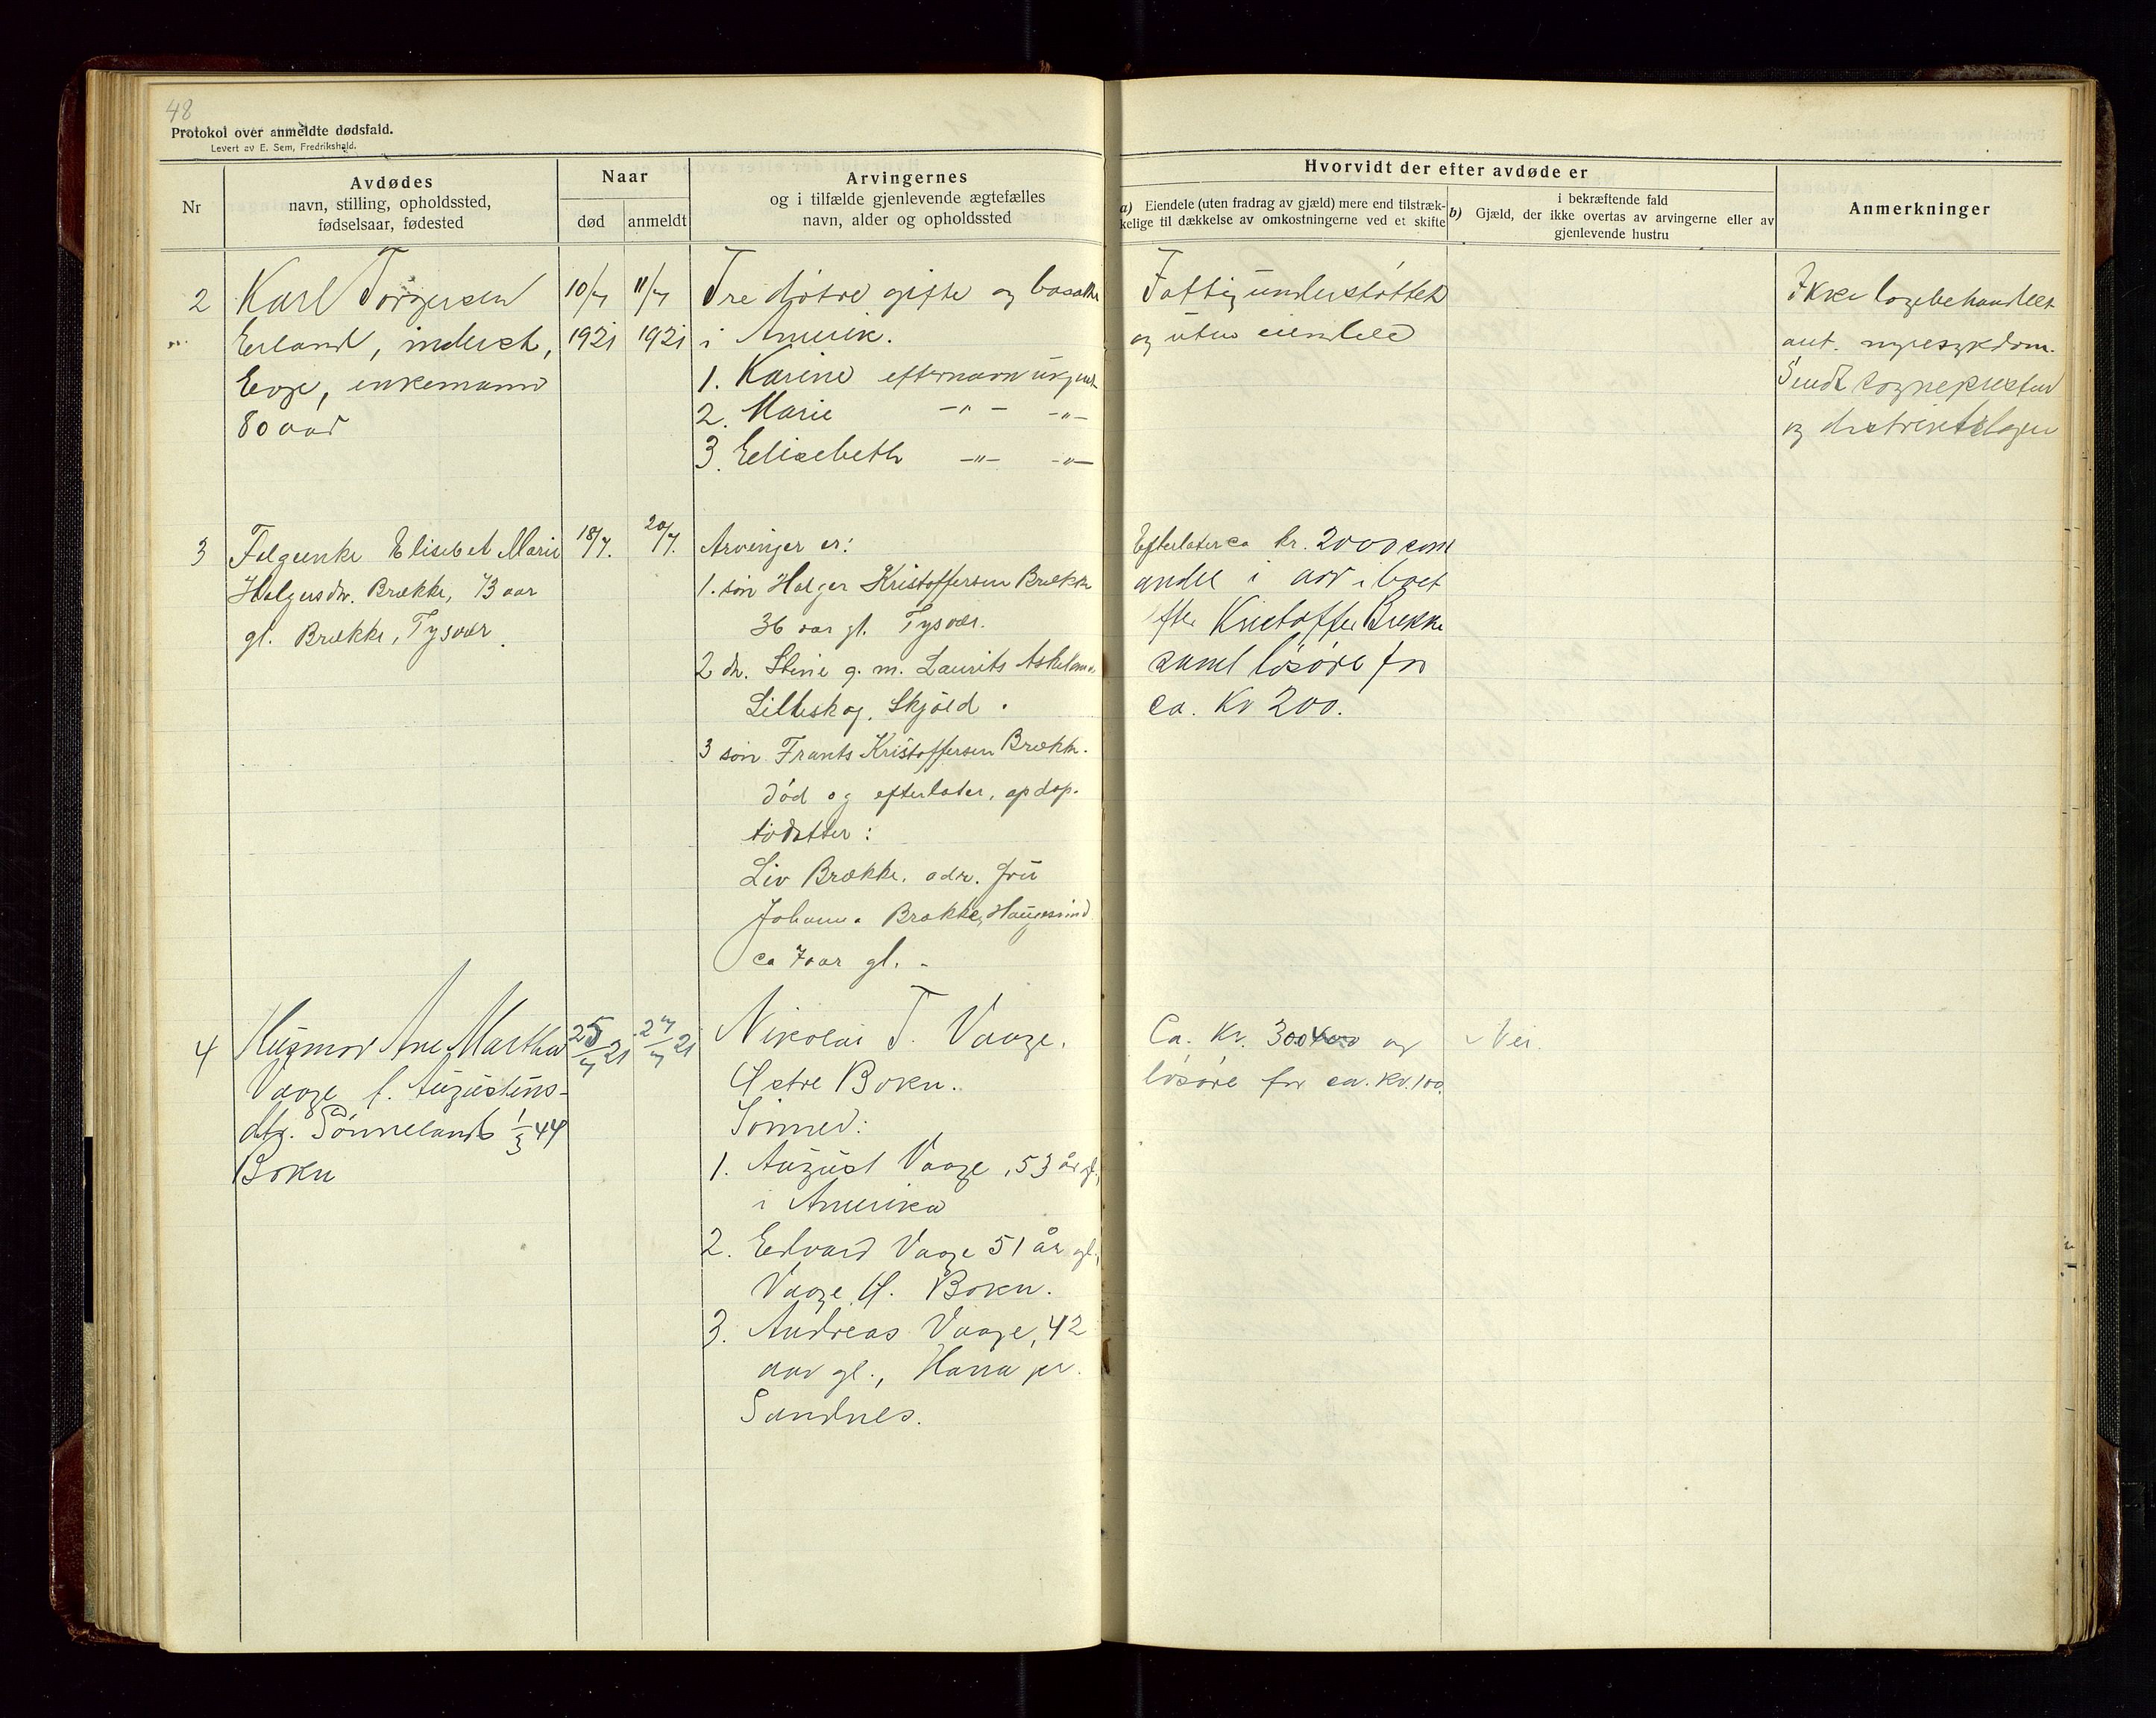 48
Protokol over anmeldte dødsfald.
Levert av E. Sem, Fredrikshald.
Nr
Avdødes
navn, stilling, opholdssted,
fødselsaar, fødested
Naar
død
anmeldt
Arvingernes
og i tilfælde gjenlevende ægtefælles
navn, alder og opholdssted
Hvorvidt der efter avdøde er
a) Eiendele (uten fradrag av gjæld) mere end tilstræk-
kelige til dækkelse av omkostningerne ved et skifte
b) i bekræftende fald
Gjæld, der ikke overtas av arvingerne eller av
gjenlevende hustru
Anmerkninger
2
Karl Torgersen
Erland, inderst,
Evje, enkemann
80 aar
10/7
1921
11/7
1921
Tre døtre gifte og bosatte
i Amerik.
1. Karine efternavn ukjent
2. Marie -"- -"-
3. Elisebeth -"- -"-
Fattigunderstøttet
og uten eiendele
Ikke lægebehandlet
ant. nyresykdom.
Sendt sognepresten
og distriktslægen
3
Folgeenke Elisebet Marie
Holgersdtr. Brække, 73 aar
gl. Brække, Tysvær.
18/7.
20/7.
Arvinger er:
1. søn Holger Kristoffersen Brække
36 aar gl. Tysvær.
2 dtr. Stine g. m. Laurits
Lilleskog, Skjold.
3 søn Frants Kristoffersen Brække.
død og efterlater, opdop.
tiodatter:
Liv Brække. adr. fru
Johanna Brække, Haugesund
ca 7 aar gl. -
Efterlater ca kr. 2000 som
andel i arv i boet
efter Kristoffer Brekke
samt løsøre for
ca. Kr 200.
4
Husmor Ane Martha
Vaage f. Augustins-
dtr. Sønneland 1/3 44
Bokn
25/7 21
27/7 21
Nikolai T. Vaage,
Østre Bokn.
Sønner:
1. August Vaage, 53 år gl.,
i Amerika
2. Edvard Vaage 51 år gl.,
Vaage, Ø. Bokn.
3. Andreas Vaage, 42
aar gl., Hana pr.
Sandnes.
Ca. Kr. 300 og
løsøre for ca. kr. 100.
Nei.